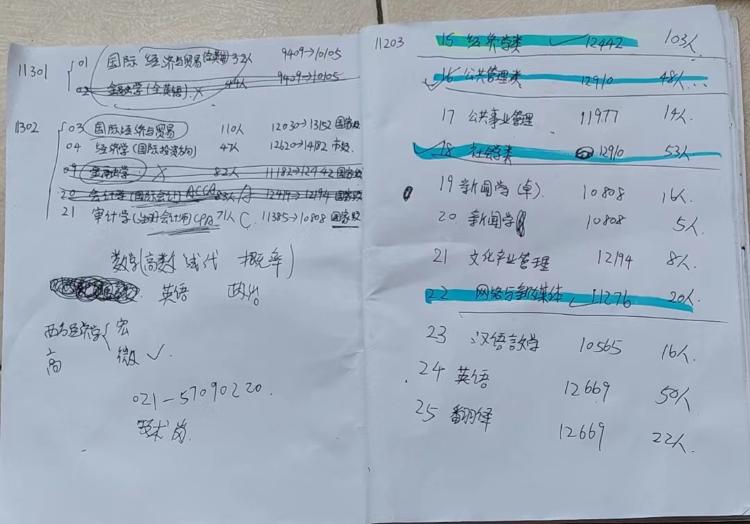 11301
01 国际经济与贸易(全英语) 32人 9409→10105
02 金融学(全英语) X 49人 9409→10105
11302
03 国际经济与贸易 110人 12030→13152 国家级
04 经济学(国际投资方向) 47人 12620→14182 市级
09 金融学 X 82人 11182→12942 国家级
20 会计学(国际会计)ACCA 83人 A 12419→12194 国家级
21 审计学(注册会计师)CPA 71人 C 11385→10808 国家级
数学(高数 线代 概率)
英语 政治
西方经济学 宏
微 ✓
高
021-57090220
技术岗
11203
15 经济学类 ✓ 12442 103人
16 公共管理类 12910 48人
17 公共事业管理 11977 14人
18 社会学类 12910 53人
19 新闻学(卓) 10808 16人
20 新闻学 10808 5人
21 文化产业管理 12194 8人
22 网络与新媒体 11276 20人
23 汉语言文学 10565 16人
24 英语 12669 50人
25 翻译 12669 22人